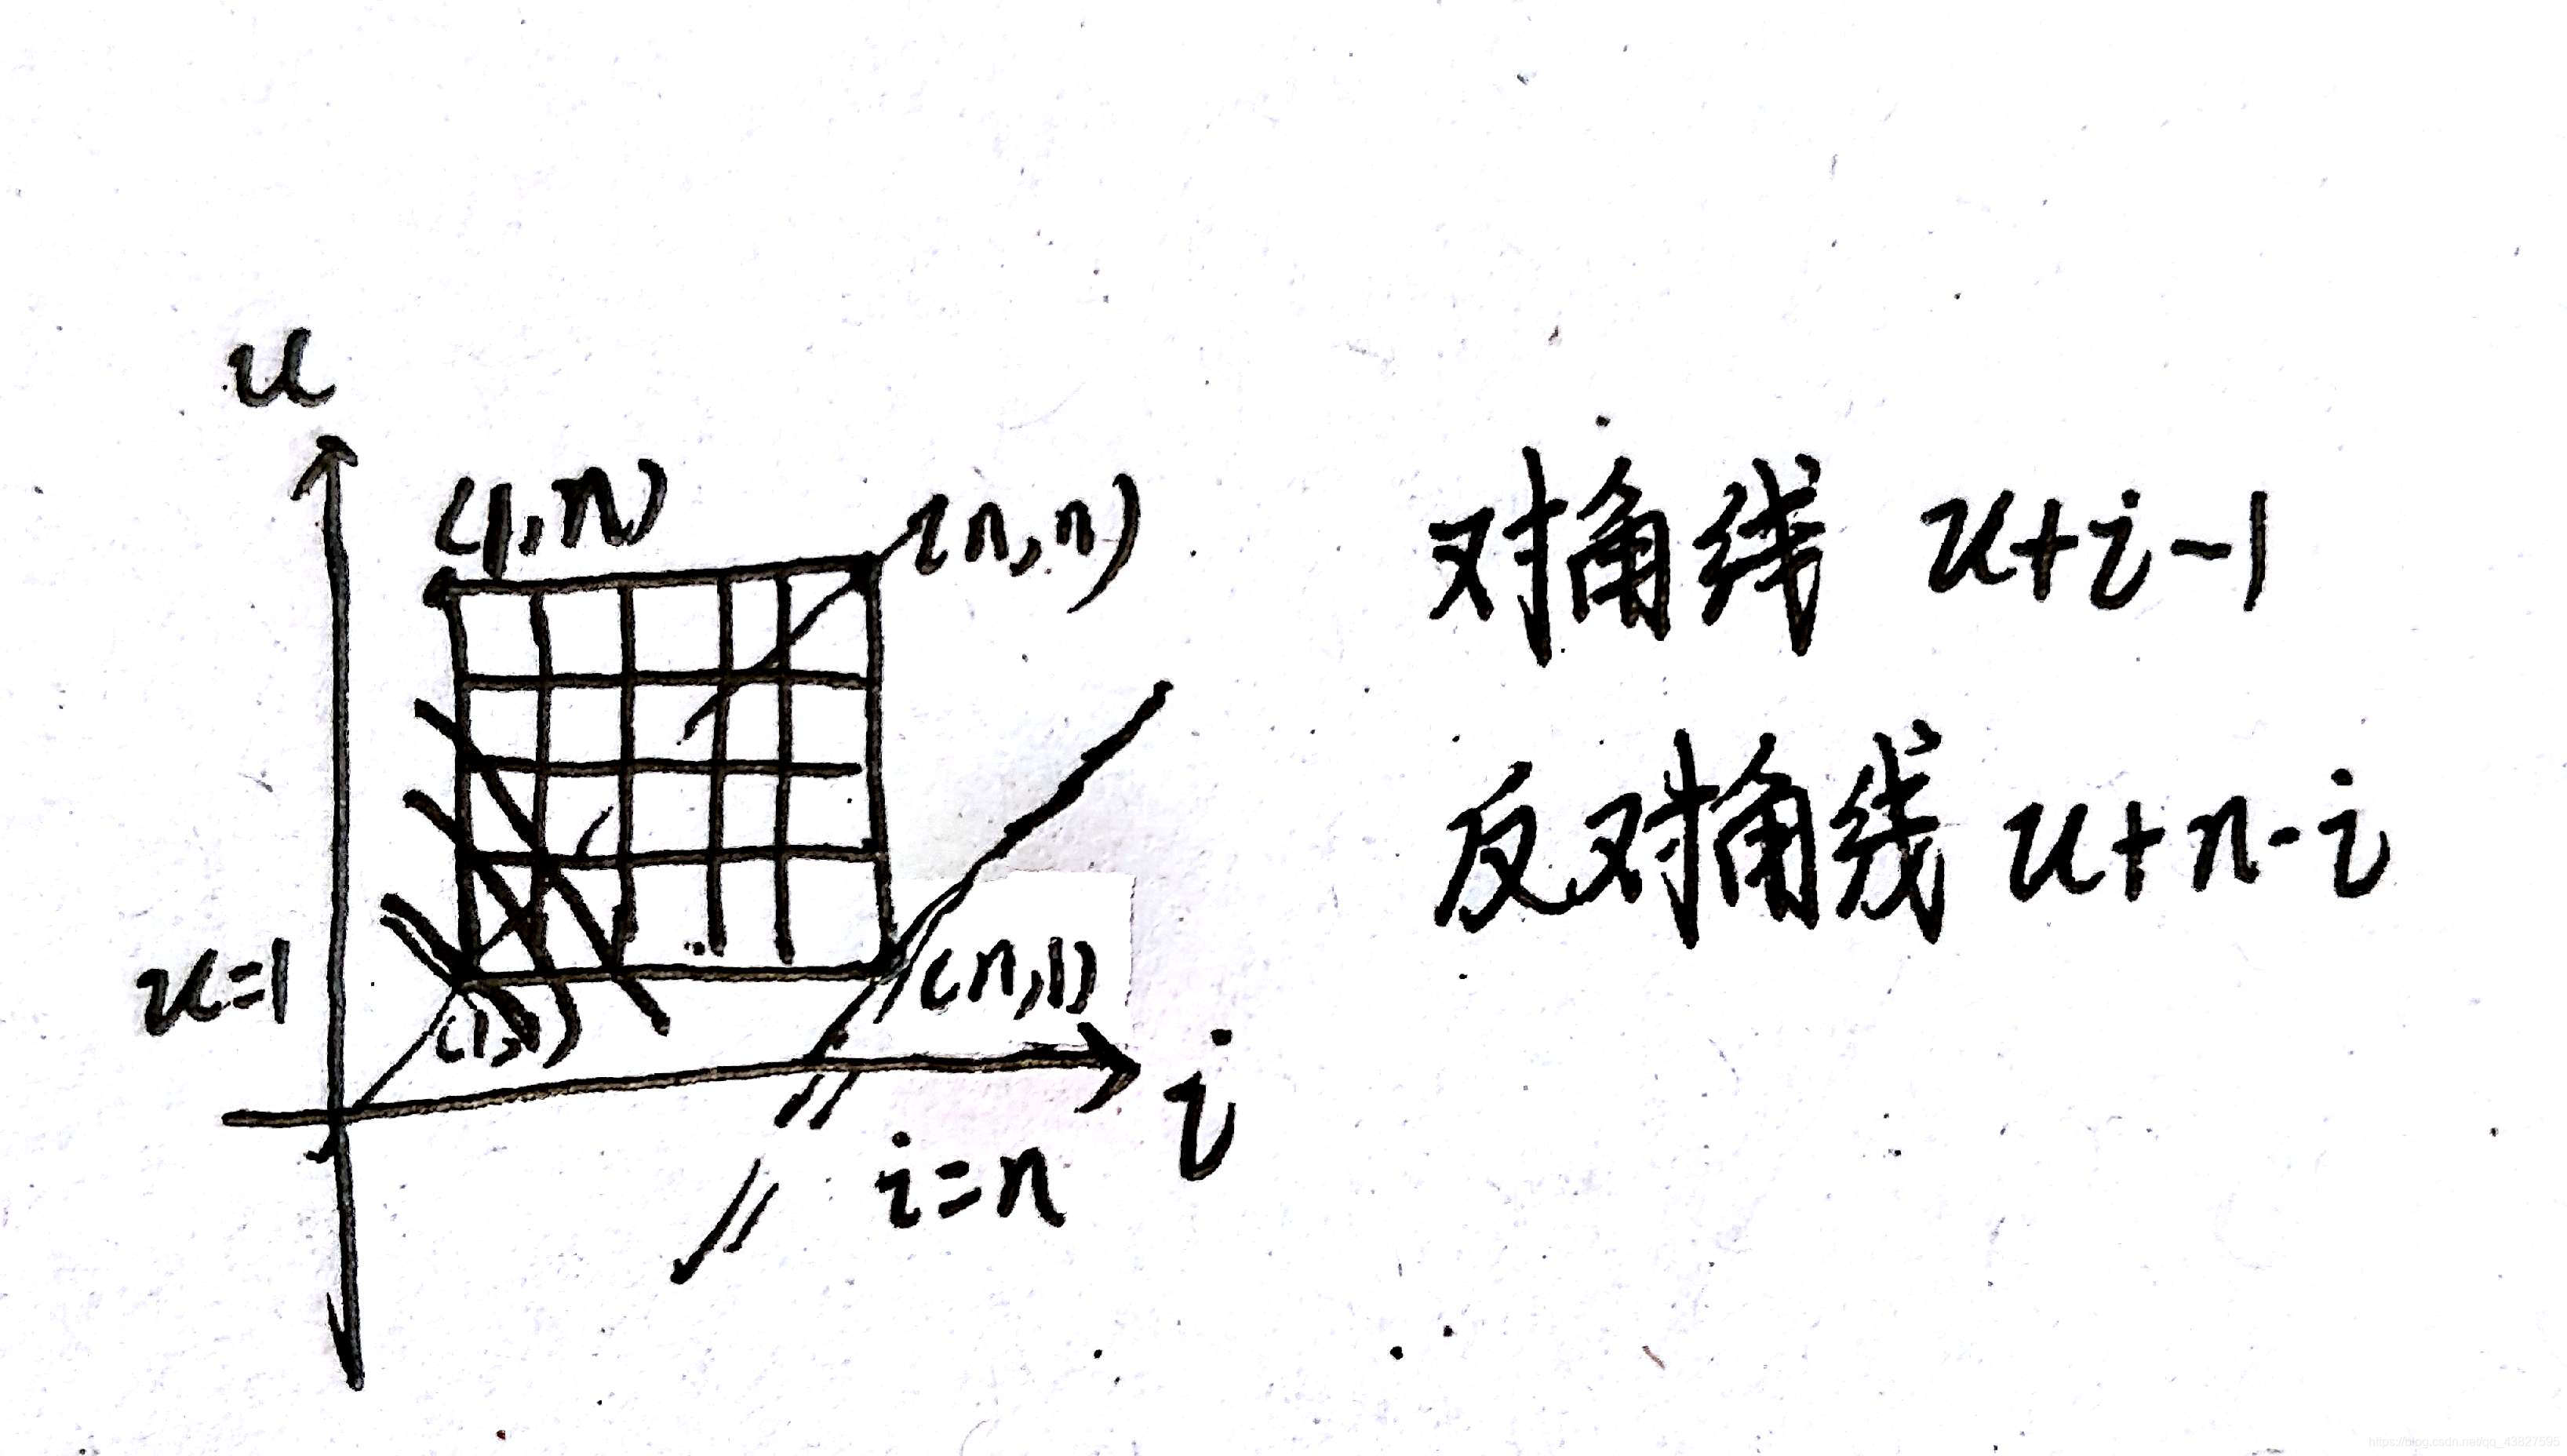 u
(1,n)
(n,n)
对角线 u+i-1
反对角线 u+n-i
u=1
(1,1)
(n,1)
i
i=n
https://blog.csdn.net/qq_43827595